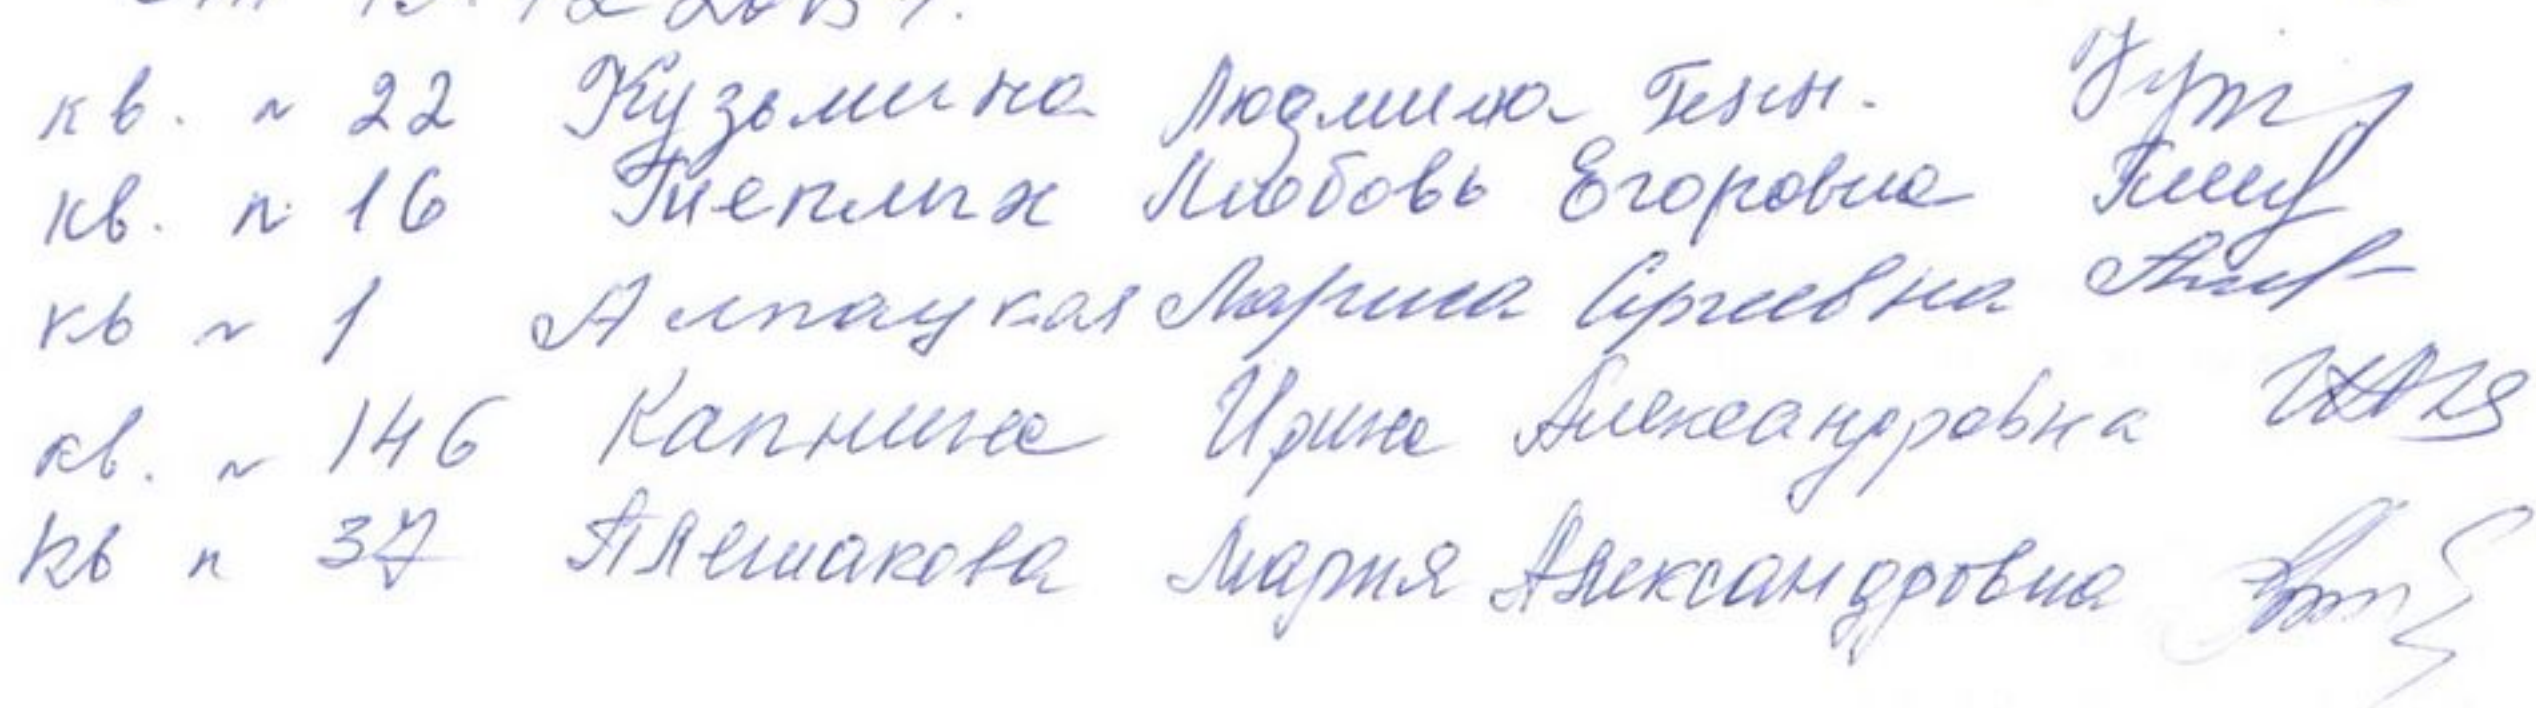 кв. N 22 Кузьмина Людмила Генн.
кв. N 16 Теплых Любовь Егоровна
кв N 1 Алпацкая Лариса Сергеевна
кв. N 146 Капнина Ирина Александровна
кв N 37 Плешакова Мария Александровна